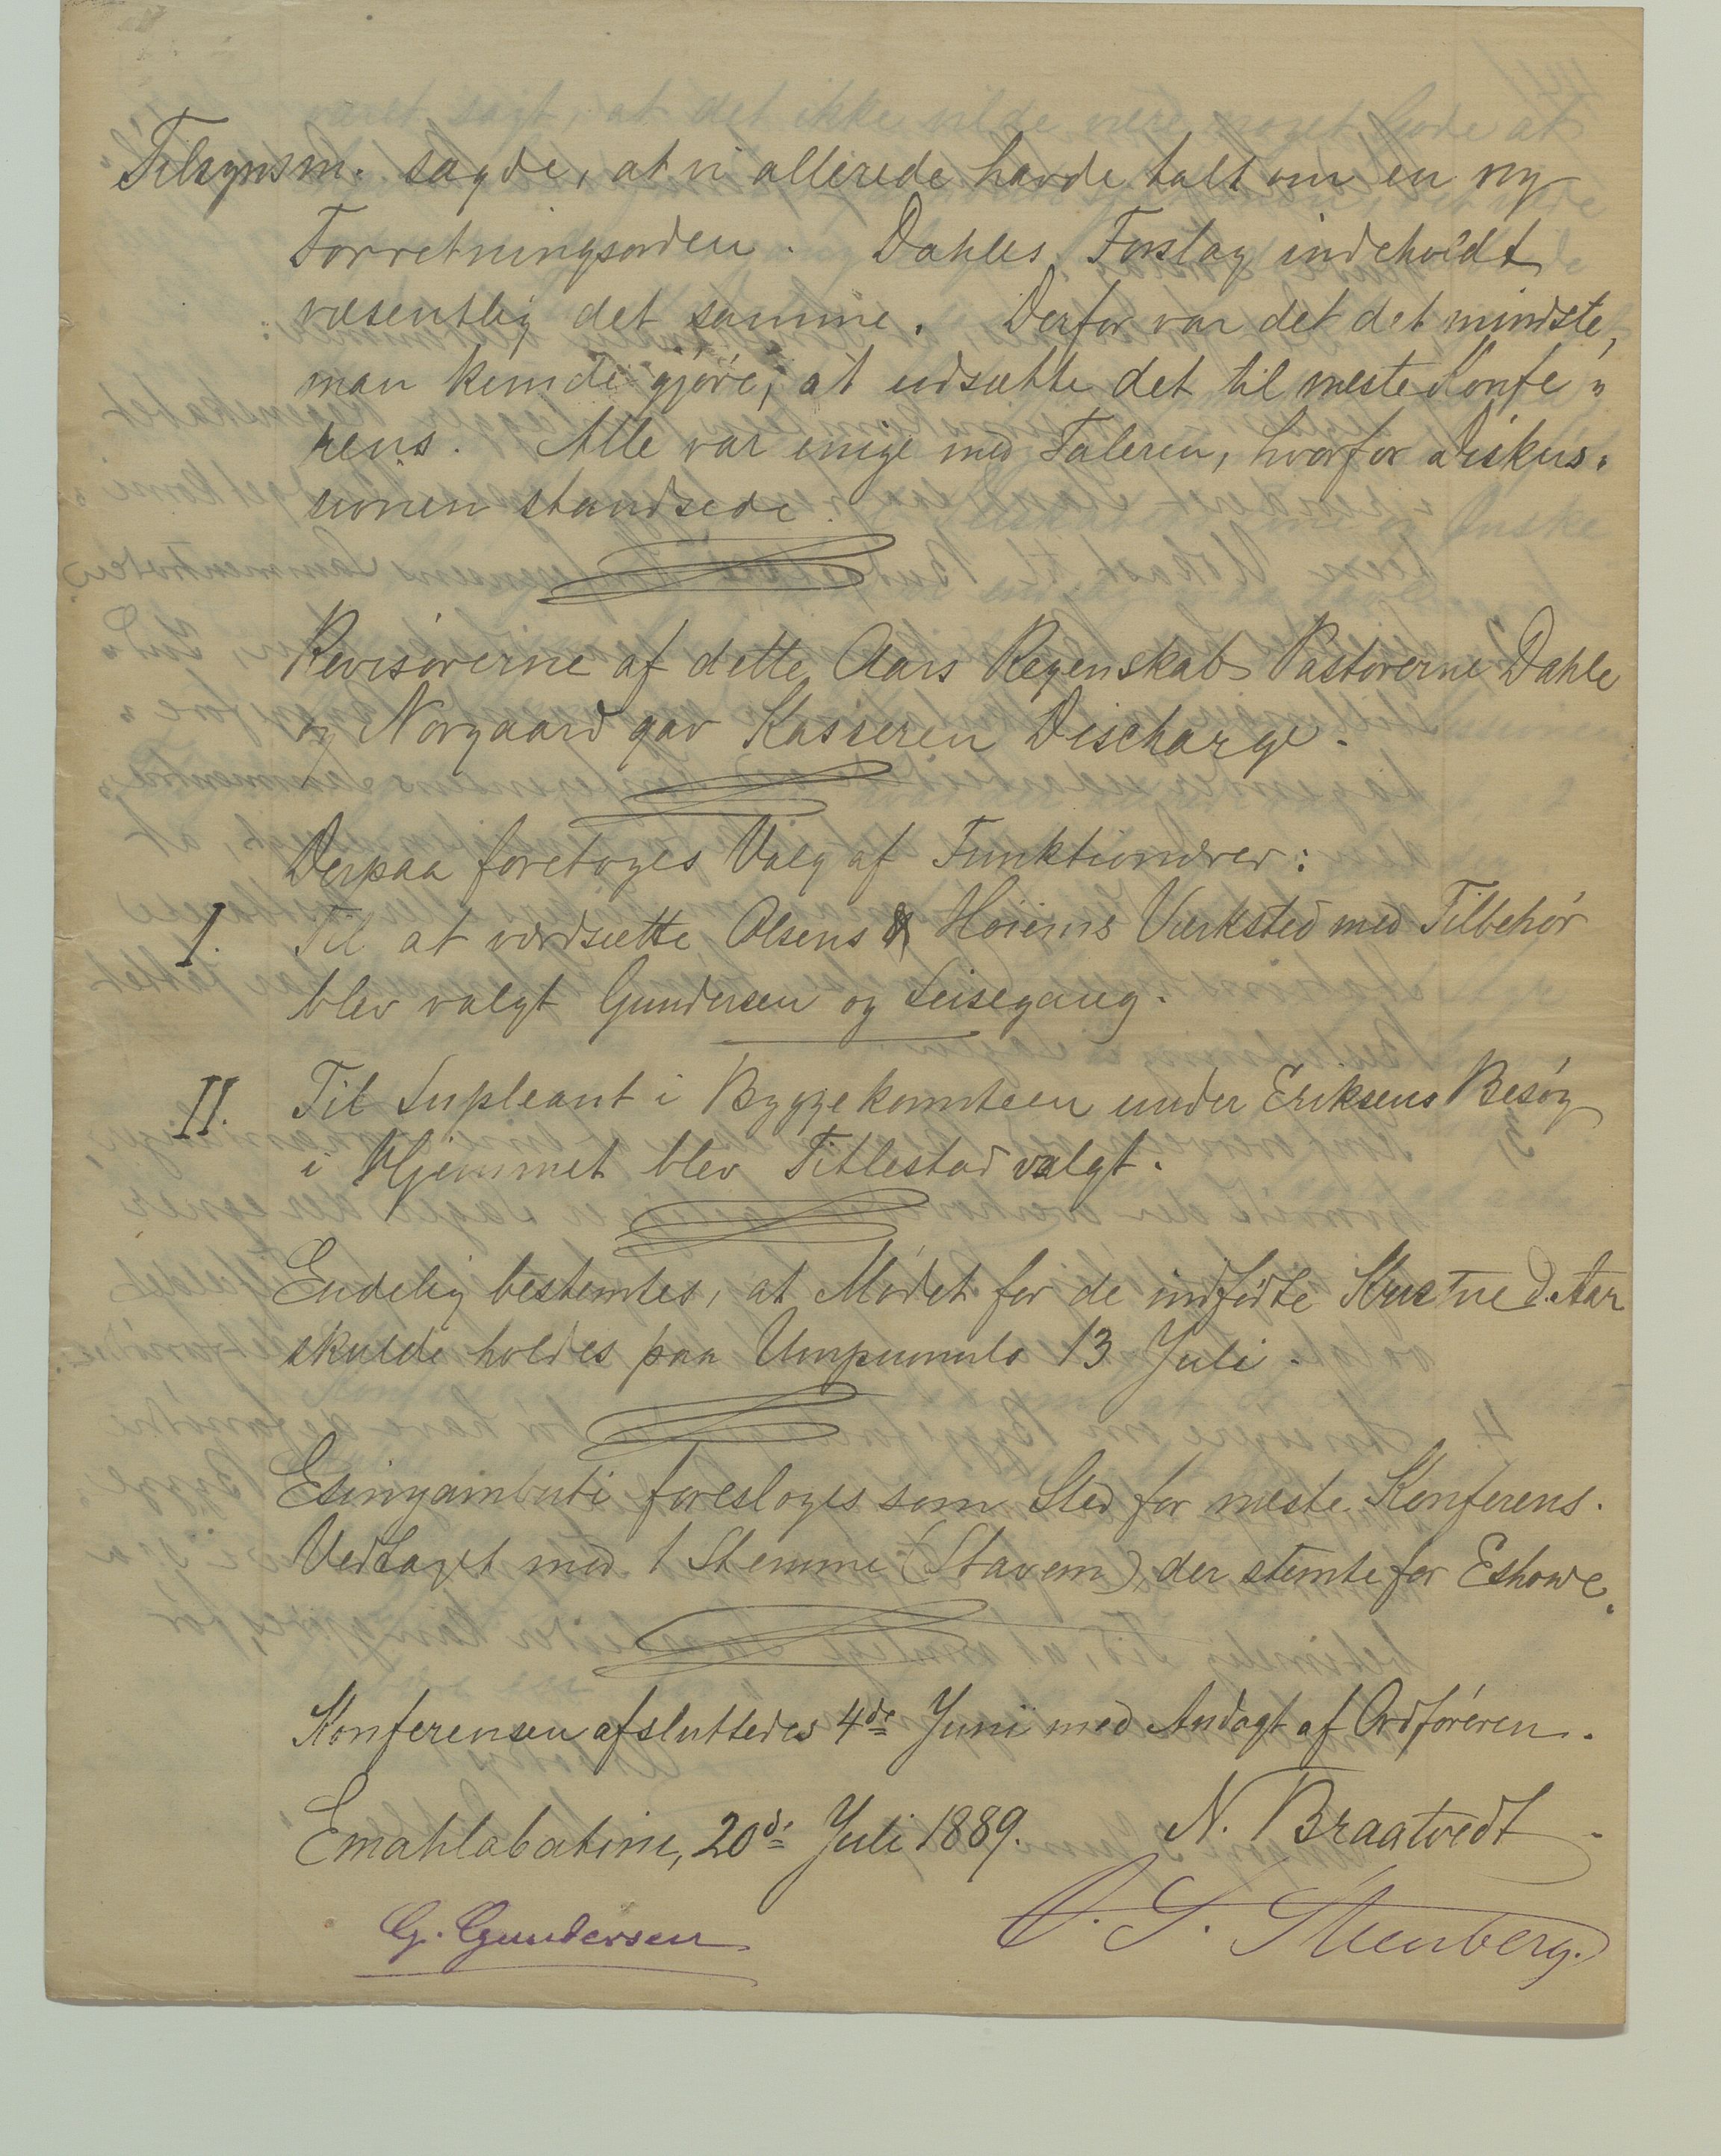 Tilsynsm. sagde, at vi allerede havde talt om en ny
Forretningsorden. Dahles Forslag indeholdt
væsentlig det samme. Derfor var det det mindste,
man kunde gjøre, at udsætte det til næste Konfe„
rens. Alle var enige med Taleren, hvorfor Diskus„
sionen standsede.
Revisorerne af dette Aars Regenskab Pastorerne Dahle
og Norgaard gav Kasseren Discharge.
Derpaa foretoges Valg af Funktionærer:
I. Til at værdsætte Olsens & Høiems Værksted med Tilbehør
blev valgt Gundersen og Leisegang.
II. Til Supleant i Byggekomiteen under Eriksens Besøg
i Hjemmet blev Titlestad valgt.
Endelig bestemtes, at Mødet for de indfødte Kristne d. Aar
skulde holdes paa Umpumulo 13 Juli.
Esinyambuti foresloges som Sted for næste Konferens.
Vedtaget mod 1 Stemme (Stavem), der stemte for Eshowe.
Konferensen afsluttedes 4de Juni med Andagt af Ordføreren.
Emahlabatini, 20de Juli 1889. N. Braatvedt.
G. Gundersen
O. S. Steenberg.